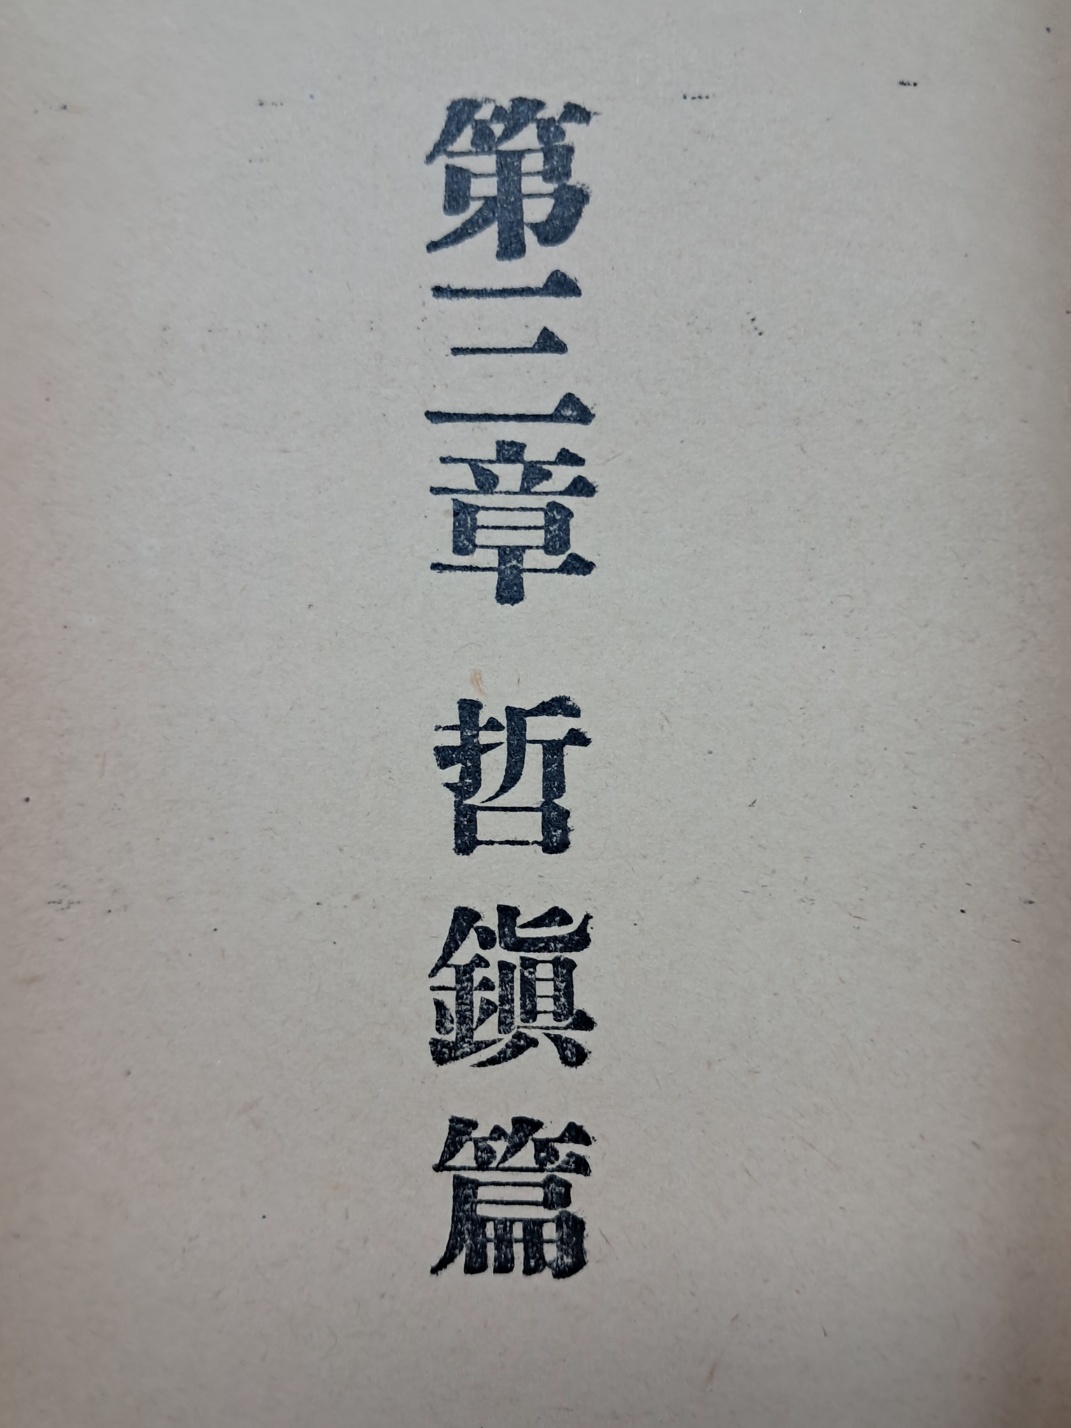 第三章 哲鎭篇